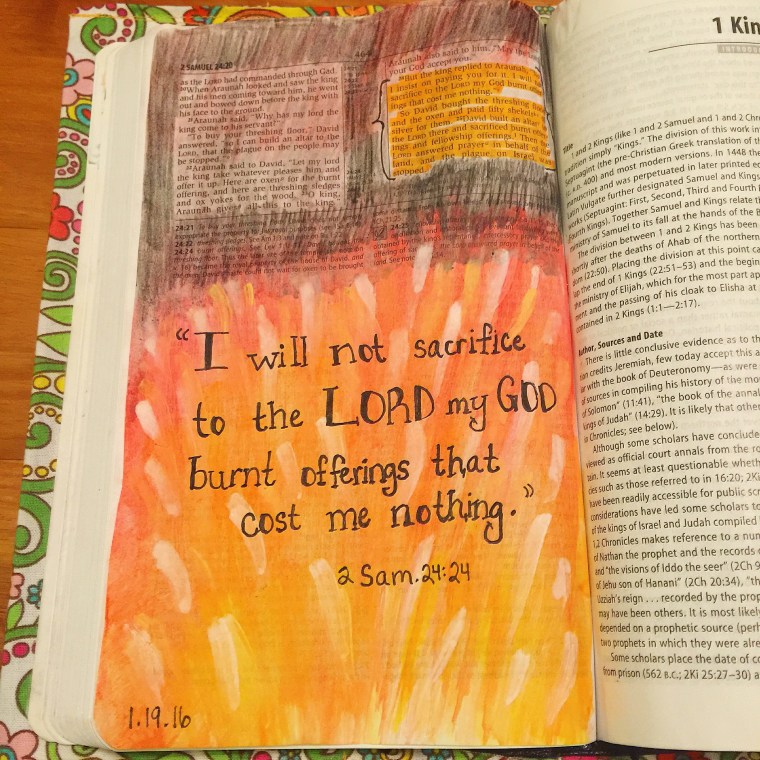 2 SAMUEL 24:20
as the LORD had commanded through Gad.
20When Araunah looked and saw the king
and his men coming toward him, he went
out and bowed down before the king with
his face to the ground.
21Araunah said, "Why has my lord the
king come to his servant?"
"To buy your threshing floor," David
answered, "so I can build an altar to the
LORD, that the plague on the people may
be stopped."
22Araunah said to David, "Let my lord
the king take whatever pleases him and
offer it up. Here are oxen for the burnt
offering, and here are threshing sledges
and ox yokes for the wood. O king,
Araunah gives all this to the king.
Araunah also said to him, "May the
your God accept you."
24But the king replied to Araunah,
I insist on paying you for it. I will
sacrifice to the LORD my God burnt
ings that cost me nothing."
So David bought the threshing
and the oxen and paid fifty shekels
silver for them. 25David built an altar
the LORD there and sacrificed burnt
ings and fellowship offerings. Then
LORD answered prayer in behalf of
land, and the plague on Israel
stopped.
"I will not sacrifice
to the LORD my GOD
burnt offerings that
cost me nothing."
2 Sam. 24:24
1.19.16
1 Kin
INTRODU
Title
1 and 2 Kings (like 1 and 2 Samuel and 1 and 2 Chr
tradition simply "Kings." The division of this work in
Septuagint (the pre-Christian Greek translation of th
and most modern versions. In 1448 the
and was perpetuated in later printed ed
Latin Vulgate further designated Samuel and Kings
works (Septuagint: First, Second, Third and Fourth
Kings). Together Samuel and Kings relate th
of Samuel to its fall at the hands of the B
The division between 1 and 2 Kings has been
after the deaths of Ahab of the northern
(22:50). Placing the division at this point ca
the end of 1 Kings (22:51–53) and the begin
the ministry of Elijah, which for the most part ap
and the passing of his cloak to Elisha at
contained in 2 Kings (1:1—2:17).
Author, Sources and Date
There is little conclusive evidence as to th
credits Jeremiah, few today accept this a
with the book of Deuteronomy—as were
sources in compiling his history of the mo
of Solomon" (11:41), "the book of the annal
kings of Judah" (14:29). It is likely that other
Chronicles; see below).
Although some scholars have conclude
viewed as official court annals from the ro
It seems at least questionable wheth
such as those referred to in 16:20; 2Ki
have been readily accessible for public scr
considerations have led some scholars to
of the kings of Israel and Judah compiled
1,2 Chronicles makes reference to a num
of Nathan the prophet and the records
and "the visions of Iddo the seer" (2Ch 9
of Jehu son of Hanani" (2Ch 20:34), "th
Uzziah's reign . . . recorded by the prop
may have been others. It is most likely
depended on a prophetic source (perh
two prophets in which they were alre
Some scholars place the date of co
from prison (562 B.C.; 2Ki 25:27–30) a